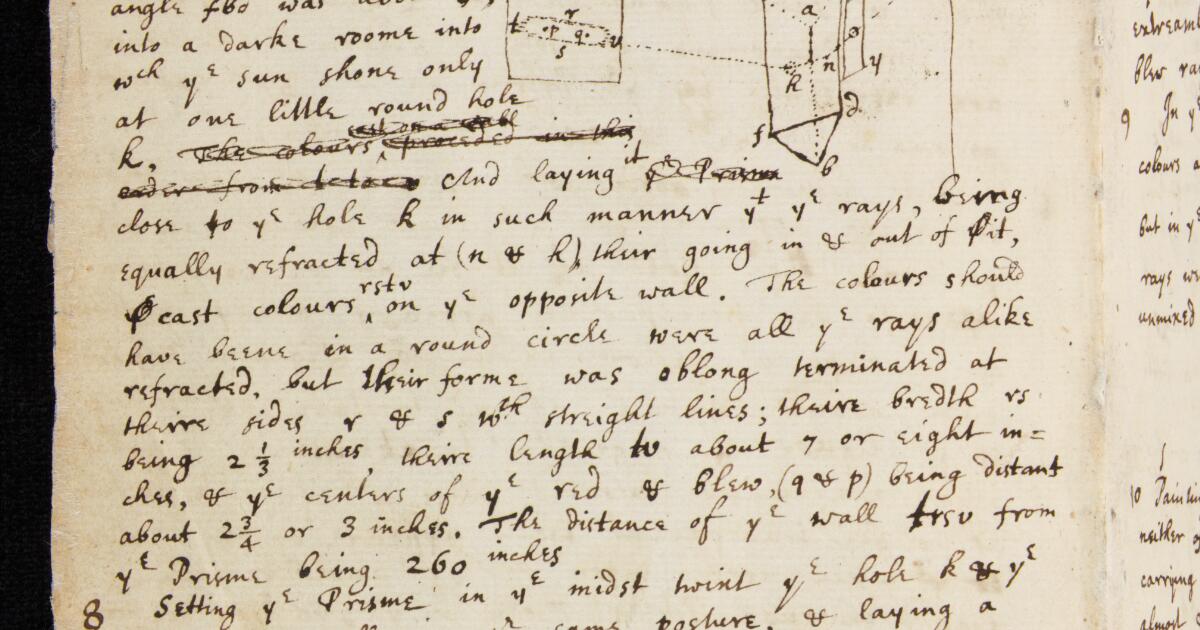 angle fbo was
into a darke roome into
wch ye sun shone only
at one little round hole
k. The colours cast on a proceded in this
order from And laying it ye Prisme
close to ye hole k in such manner yt ye rays, being
equally refracted at (n & h) their going in & out of it,
cast colours rstv on ye opposite wall. The colours should
have beene in a round circle were all ye rays alike
refracted, but their forme was oblong terminated at
theire sides r & s wth streight lines; theire bredth rs
being 2 1/3 inches, theire length tv about 7 or eight in=
ches, & ye centers of ye red & blew, (q & p) being distant
about 2 3/4 or 3 inches. The distance of ye wall trsv from
ye Prisme being 260 inches
8 Setting ye Prisme in ye midst twixt ye hole k & ye
same posture, & laying a
r
t p q v
s
a
n
y
h
d
f
b
extreame
blew
9 In
colours
but in
rays
unmixed
10
neither
carrying
almost